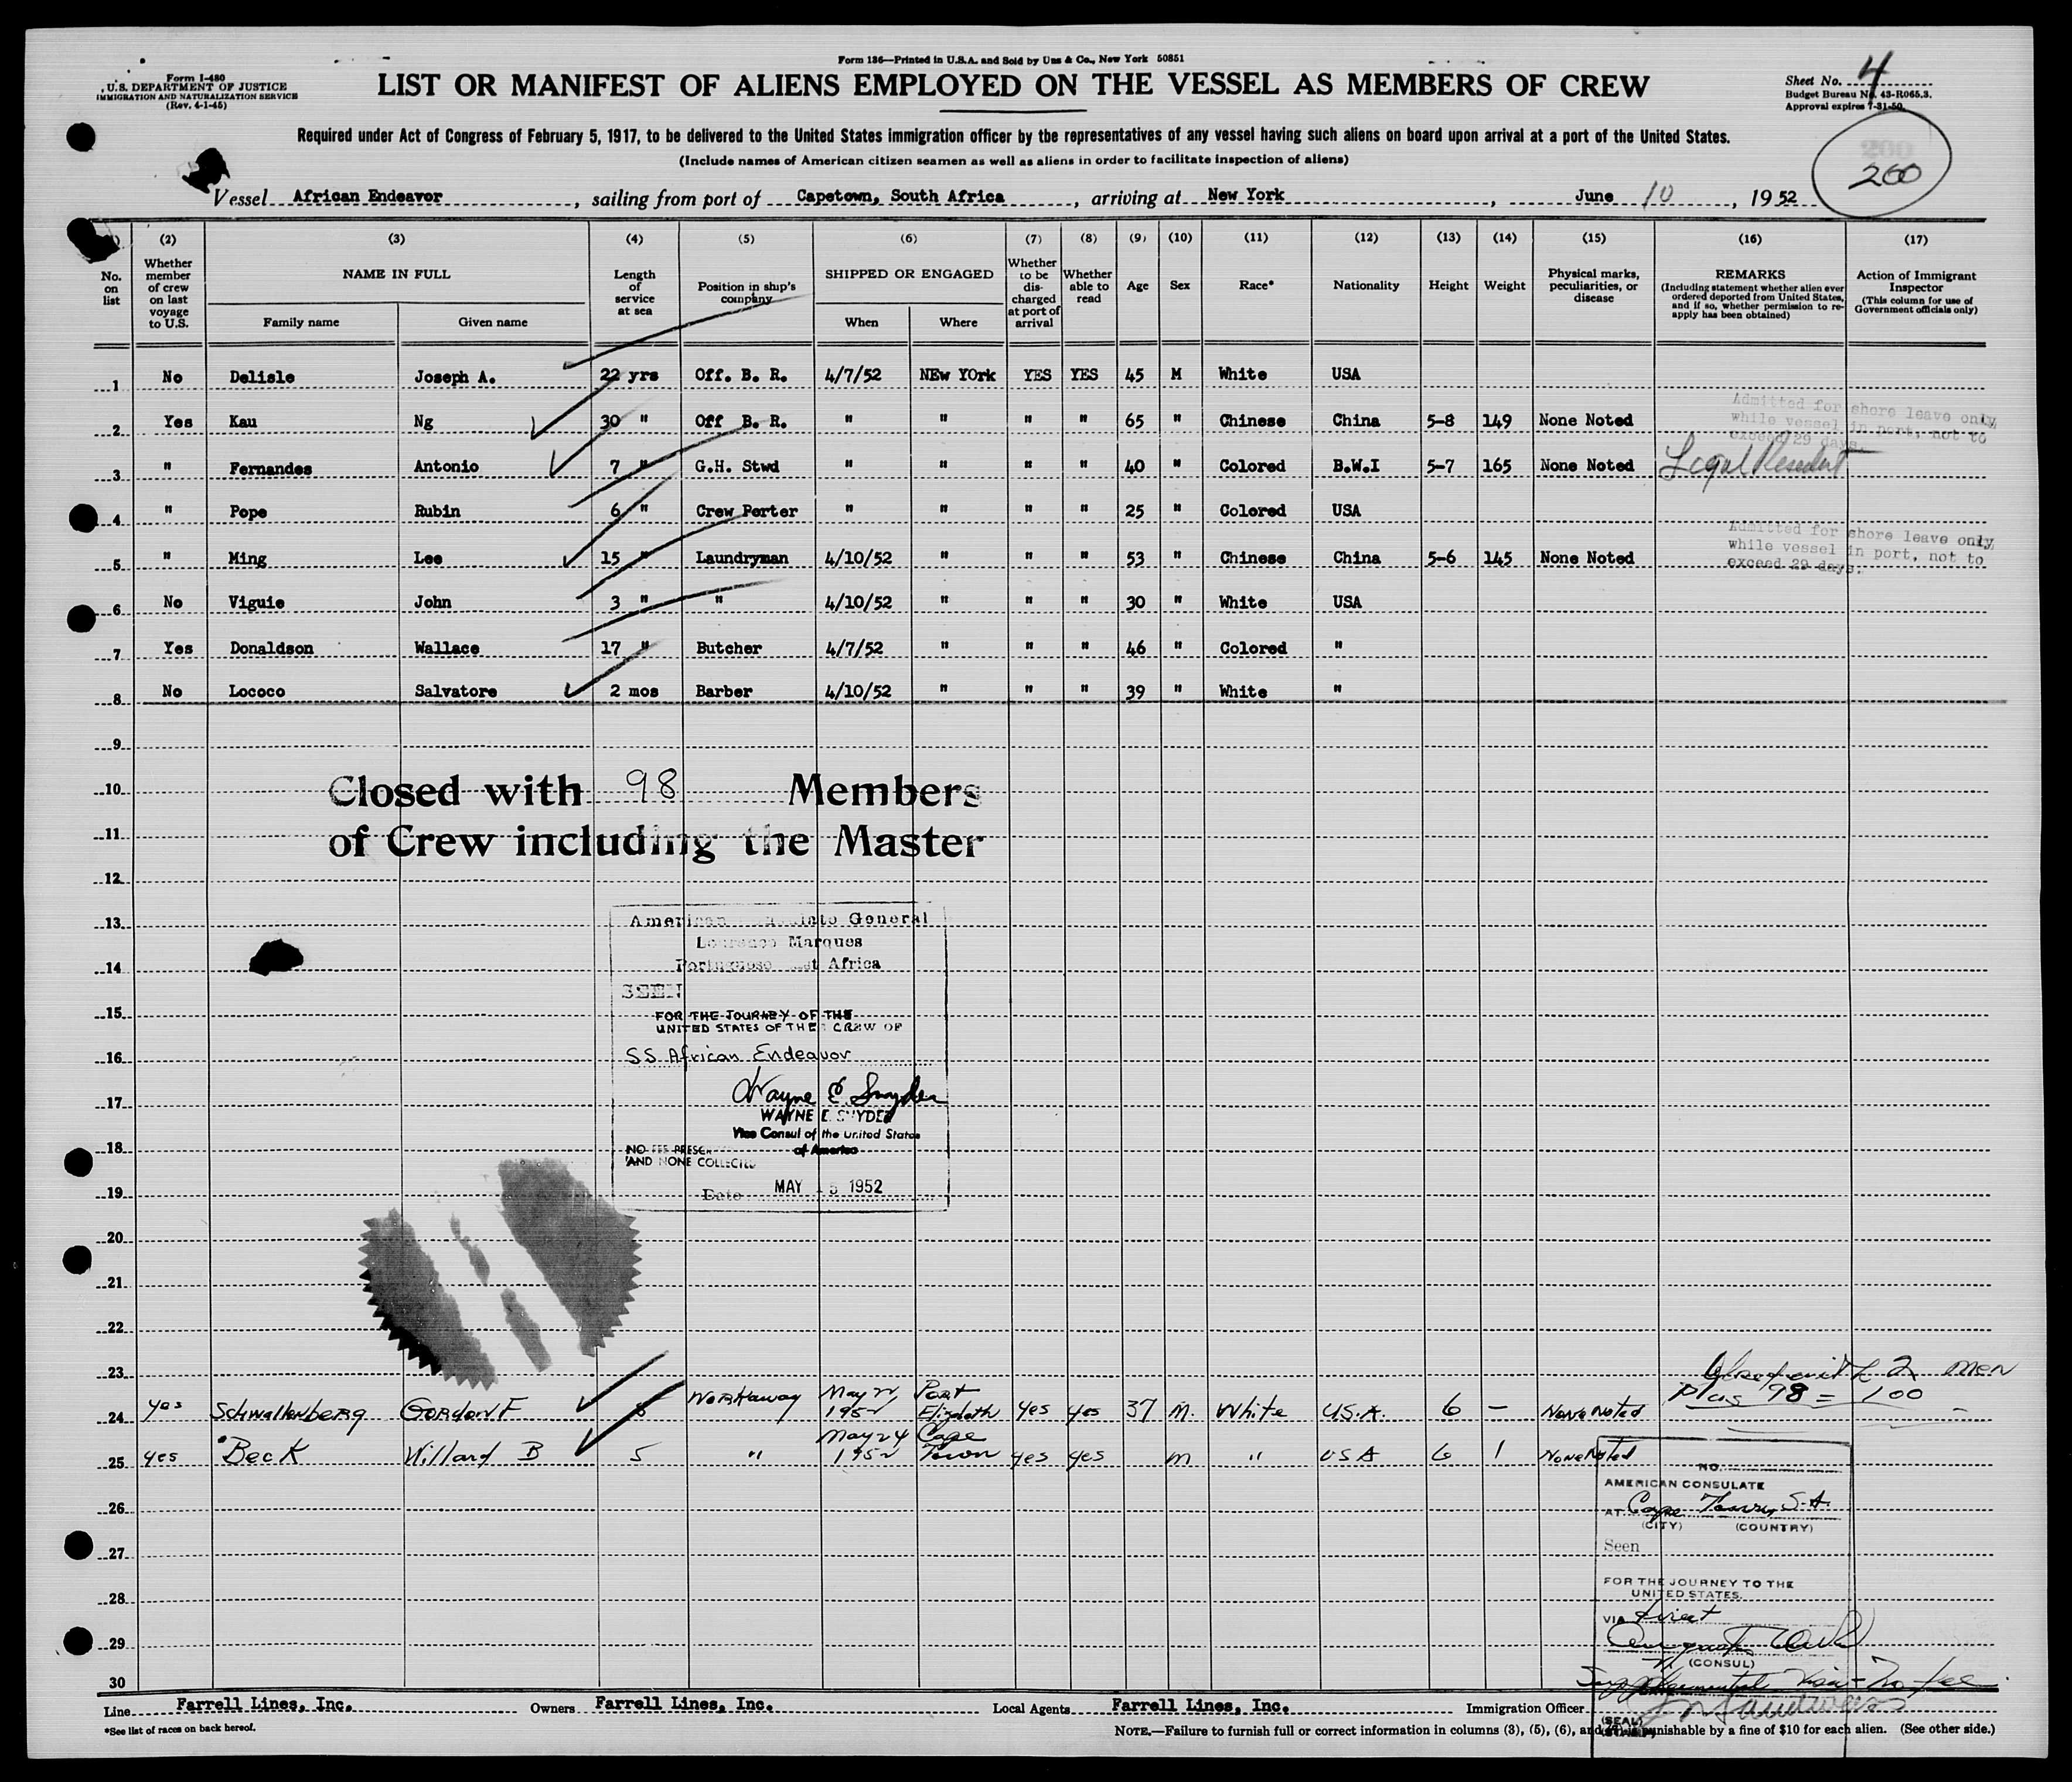 Form 136—Printed in U.S.A. and Sold by Unz & Co., New York 50851
Form I-480
U.S. DEPARTMENT OF JUSTICE
IMMIGRATION AND NATURALIZATION SERVICE
(Rev. 4-1-45)
LIST OR MANIFEST OF ALIENS EMPLOYED ON THE VESSEL AS MEMBERS OF CREW
Sheet No. 4
Budget Bureau No. 43-R065.3.
Approval expires 7-31-50.
Required under Act of Congress of February 5, 1917, to be delivered to the United States immigration officer by the representatives of any vessel having such aliens on board upon arrival at a port of the United States.
(Include names of American citizen seamen as well as aliens in order to facilitate inspection of aliens)
200
200
Vessel African Endeavor, sailing from port of Capetown, South Africa, arriving at New York, June 10, 1952
(2) (3) (4) (5) (6) (7) (8) (9) (10) (11) (12) (13) (14) (15) (16) (17)
No. on list
Whether member of crew on last voyage to U.S.
NAME IN FULL
Family name
Given name
Length of service at sea
Position in ship's company
SHIPPED OR ENGAGED
When
Where
Whether to be discharged at port of arrival
Whether able to read
Age
Sex
Race*
Nationality
Height
Weight
Physical marks, peculiarities, or disease
REMARKS
(Including statement whether alien ever ordered deported from United States, and if so, whether permission to re-apply has been obtained)
Action of Immigrant Inspector
(This column for use of Government officials only)
1 No Delisle Joseph A. 22 yrs Off. B. R. 4/7/52 NEw YOrk YES YES 45 M White USA
2 Yes Kau Ng 30 " Off B. R. " " " " 65 " Chinese China 5-8 149 None Noted
Admitted for shore leave only,
while vessel in port, not to
exceed 29 days.
3 " Fernandes Antonio 7 " G.H. Stwd " " " " 40 " Colored B.W.I 5-7 165 None Noted Legal Resident
4 " Pope Rubin 6 " Crew Porter " " " " 25 " Colored USA
5 " Ming Lee 15 " Laundryman 4/10/52 " " " 53 " Chinese China 5-6 145 None Noted
Admitted for shore leave only,
while vessel in port, not to
exceed 29 days.
6 No Viguie John 3 " " 4/10/52 " " " 30 " White USA
7 Yes Donaldson Wallace 17 " Butcher 4/7/52 " " " 46 " Colored "
8 No Lococo Salvatore 2 mos Barber 4/10/52 " " " 39 " White "
9
10
Closed with 98 Members
11
of Crew including the Master
12
13
American General
Lourenco Marques
14
Portuguese Africa
SEEN
15
FOR THE JOURNEY OF THE
UNITED STATES OF THE CREW OF
16
SS African Endeavor
Wayne E Snyder
17
WAYNE E. SNYDER
Vice Consul of the United States
of America
18
NO FEE PRESCR
AND NONE COLLECTED
19
Date MAY 15 1952
20
21
22
23
Closed with 2 men
plus 98 = 100
24 yes Schwallenberg Gordon F Workaway May 21, 1952 Port Elizabeth yes yes 37 M. White U.S.A. 6 — None Noted
25 yes Beck Willard B 5 " May 24 1952 Cape Town yes yes m " USA 6 1 None Noted
NO.
AMERICAN CONSULATE
26
AT Cape Town, S.A.
(CITY) (COUNTRY)
27
Seen
28
FOR THE JOURNEY TO THE
UNITED STATES.
VIA direct
29
(CONSUL)
Supplemental Visa - No fee
30
Line Farrell Lines, Inc. Owners Farrell Lines, Inc. Local Agents Farrell Lines, Inc. Immigration Officer
(SEAL)
*See list of races on back hereof.
NOTE.—Failure to furnish full or correct information in columns (3), (5), (6), and is punishable by a fine of $10 for each alien. (See other side.)